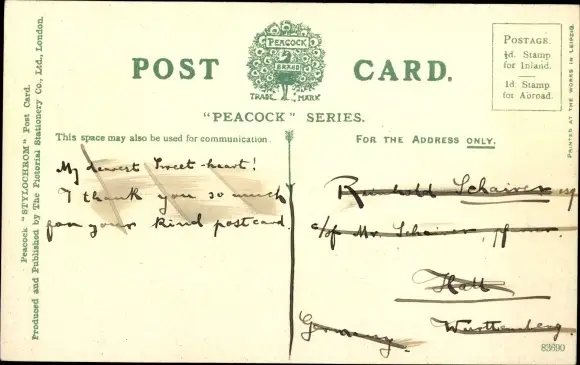 POST CARD.
PEACOCK
BRAND
TRADE MARK
"PEACOCK" SERIES.
POSTAGE.
½d. Stamp
for Inland.
1d. Stamp
for Abroad.
PRINTED AT THE WORKS IN LEIPZIG.
Peacock "STYLOCHROM" Post Card.
Produced and Published by The Pictorial Stationery Co., Ltd., London.
This space may also be used for communication
FOR THE ADDRESS ONLY.
My dearest Sweet-heart!
I thank you so much
for your kind postcard.
Reinhold Schairer esq
c/o Mr. Schairer,
Hall
Germany. Württemberg.
83690